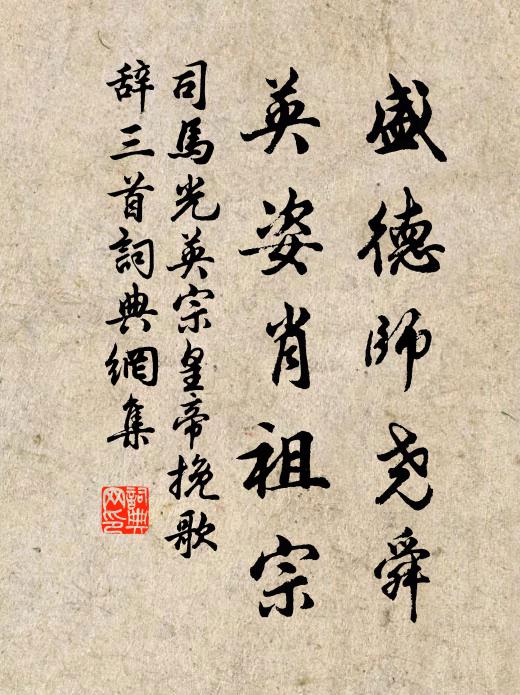 盛德师尧舜
英姿肖祖宗
司馬光英宗皇帝挽歌
辞三首詞典網集
詞典
网印